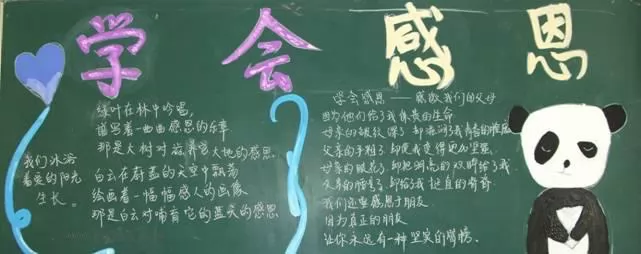 学会感恩
我们沐浴
着爱的阳光
生长。
绿叶在林中吟唱,
谱写着一曲曲感恩的乐章
那是大树对滋养它大地的感恩
白云在蔚蓝的天空中飘荡
绘画着一幅幅感人的画像
那是白云对哺育它的蓝天的感恩
学会感恩——感激我们的父母
因为他们给了我保贵的生命
母亲的皮肤 了 却 了我青春的
父亲的手粗了 却使我变得更加坚强
母亲的眼花了 却把明亮的双眸给了我
父亲的 了 却给我挺直的脊背
我们还要感恩于朋友
因为真正的朋友
让你永远有一种坚实的臂膀。